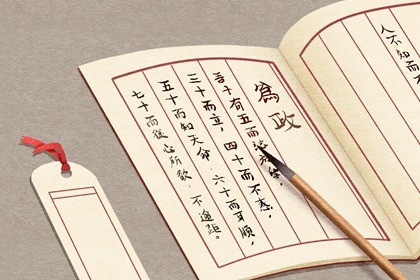 人不知而
爲政
吾十有五而
三十而立，四十而不惑，
五十而知天命，六十而耳順，
七十而從心所欲，不逾距。